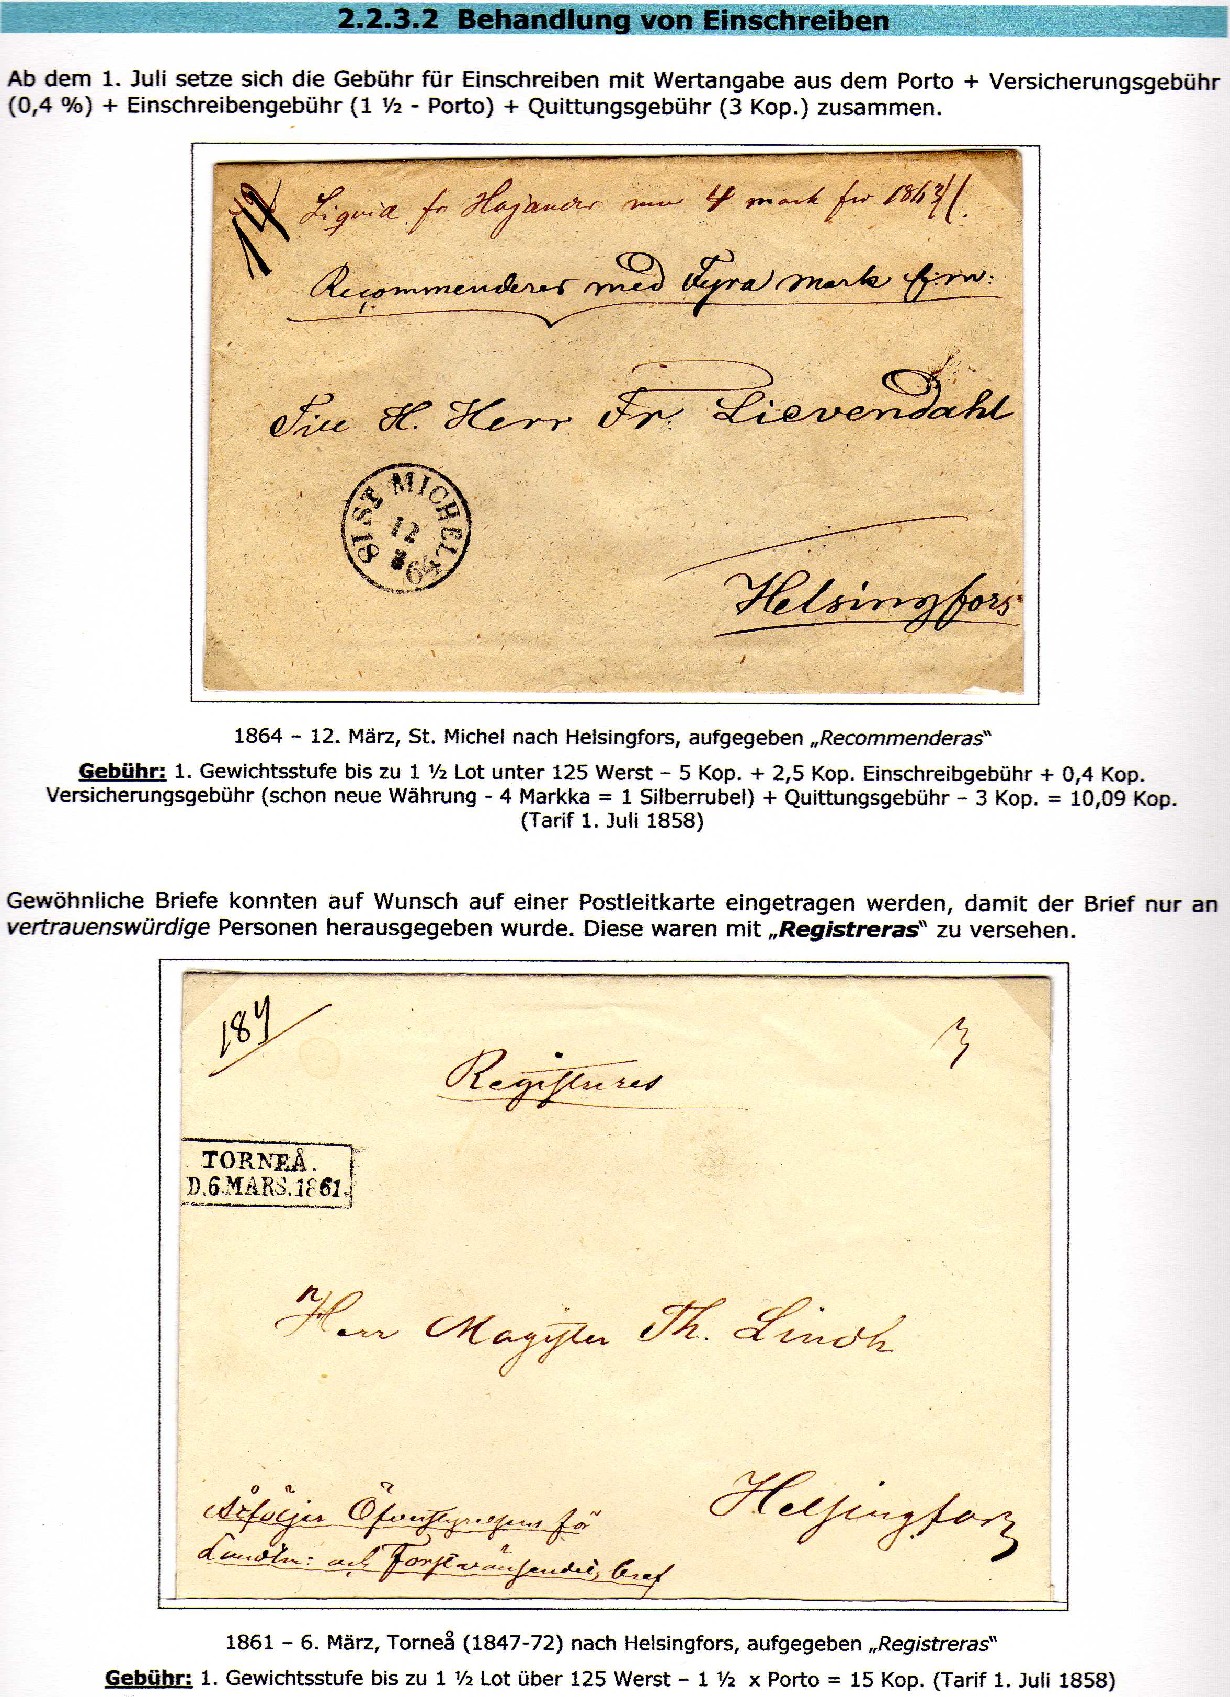 2.2.3.2 Behandlung von Einschreiben
Ab dem 1. Juli setze sich die Gebühr für Einschreiben mit Wertangabe aus dem Porto + Versicherungsgebühr
(0,4 %) + Einschreibengebühr (1 ½ - Porto) + Quittungsgebühr (3 Kop.) zusammen.
14
Liquid fr Hajander 4 mark för 1863
Recommenderes med Fyra mark
Till H. Herr Fr. Lievendahl
ST MICHEL
12
3
64
Helsingfors
1864 – 12. März, St. Michel nach Helsingfors, aufgegeben „Recommenderas“
Gebühr: 1. Gewichtsstufe bis zu 1 ½ Lot unter 125 Werst – 5 Kop. + 2,5 Kop. Einschreibgebühr + 0,4 Kop.
Versicherungsgebühr (schon neue Währung - 4 Markka = 1 Silberrubel) + Quittungsgebühr – 3 Kop. = 10,09 Kop.
(Tarif 1. Juli 1858)
Gewöhnliche Briefe konnten auf Wunsch auf einer Postleitkarte eingetragen werden, damit der Brief nur an
vertrauenswürdige Personen herausgegeben wurde. Diese waren mit „Registreras“ zu versehen.
Registreres
TORNEÅ.
D.6.MARS.1861.
Herr Magister Th. Lindh
Helsingfors
Landtm: och Forstwäsendet, bref
1861 – 6. März, Torneå (1847-72) nach Helsingfors, aufgegeben „Registreras“
Gebühr: 1. Gewichtsstufe bis zu 1 ½ Lot über 125 Werst – 1 ½ x Porto = 15 Kop. (Tarif 1. Juli 1858)